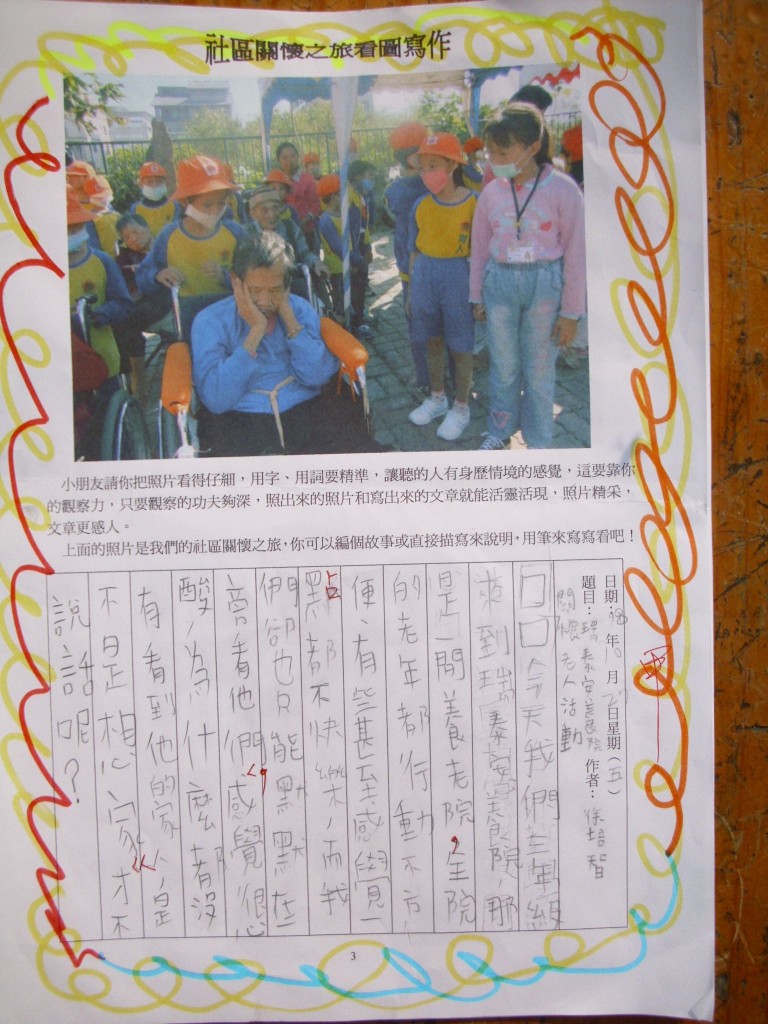 社區關懷之旅看圖寫作
小朋友請你把照片看得仔細，用字、用詞要精準，讓聽的人有身歷情境的感覺，這要靠你
的觀察力，只要觀察的功夫夠深，照出來的照片和寫出來的文章就能活靈活現，照片精采，
文章更感人。
上面的照片是我們的社區關懷之旅，你可以編個故事或直接描寫來說明，用筆來寫寫看吧！
日期：98年 月 日星期（五）
題目：瑞泰安養院 作者：徐培智
關懷老人活動
口口今天我們三年級
來到瑞泰安養院，那
是一間養老院，全院
的老年都行動不方
便，有些甚至感覺一
點都不快樂，而我
們卻也只能默默在
旁看他們，感覺很心
酸，為什麼都沒
有看到他的家人，是
不是想家才不
說話呢？
3